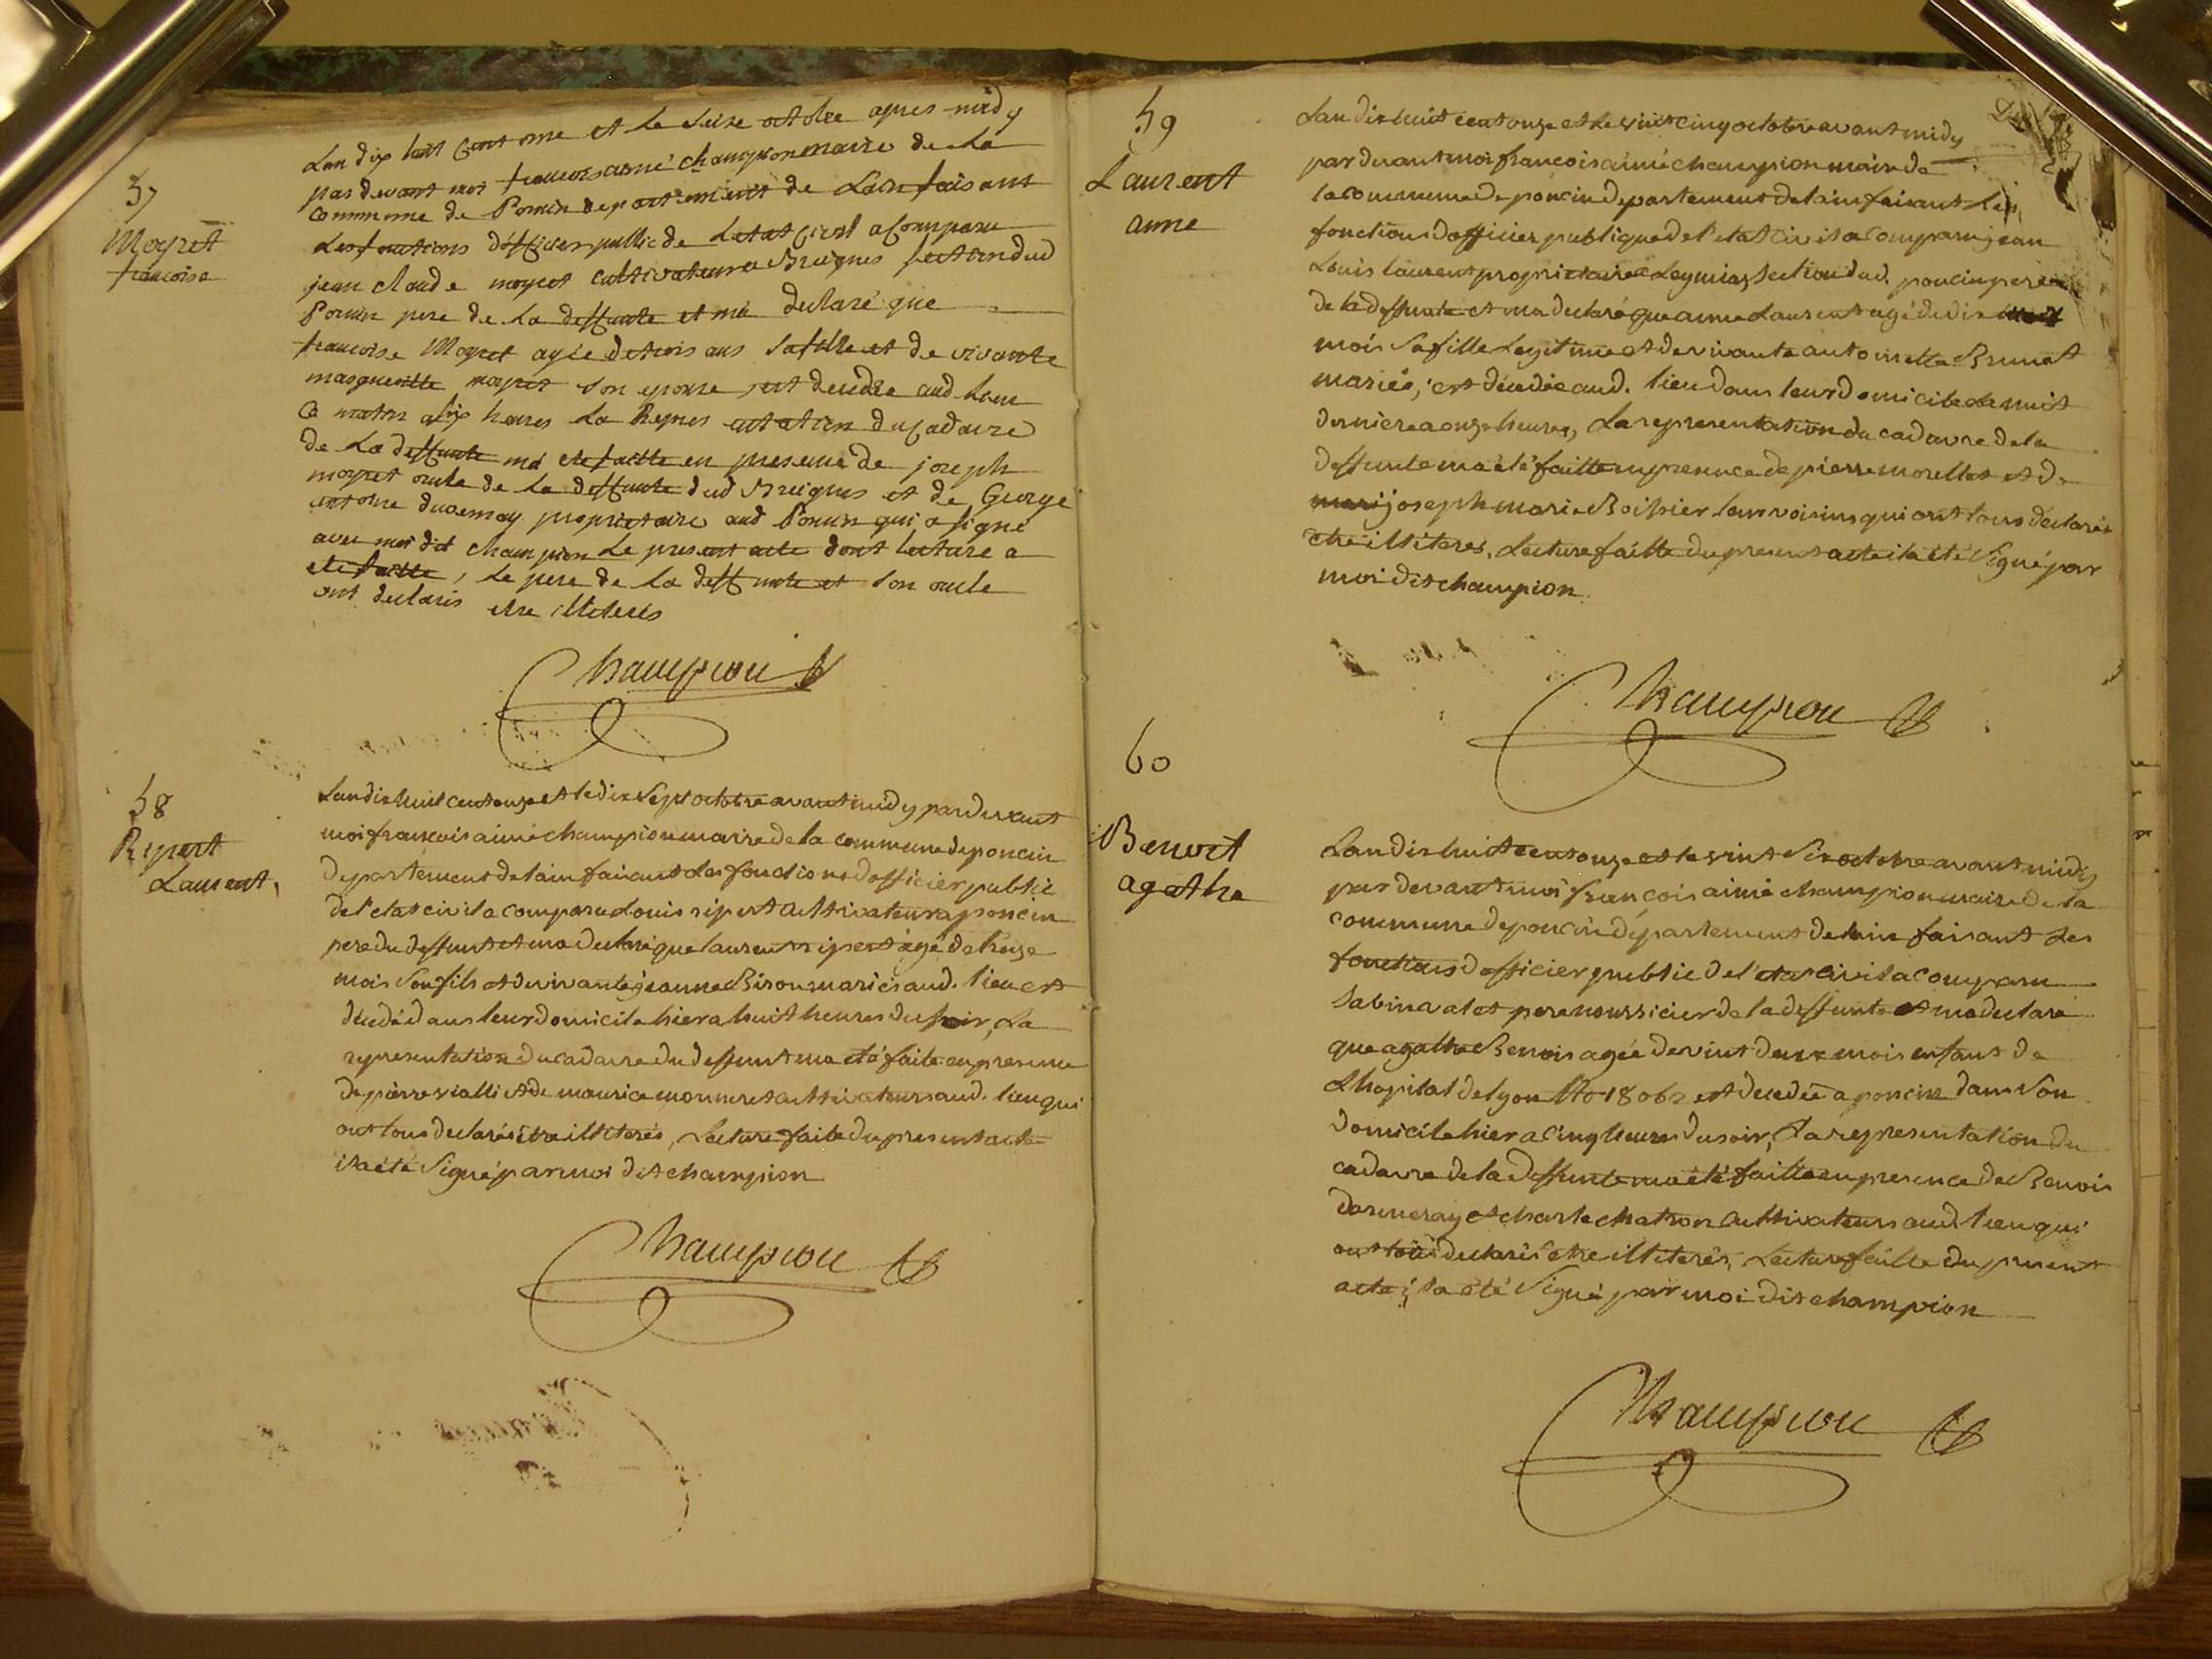 57
Moyret
francoise
Lan dix huit cent onze et le seize octobre apres midy
par devant moi francois aimé champion maire de la
commune de Poncin departement de Lain faisant
Les fonctions d'officier public de Letat civil a Comparu
jean claude moyret cultivateur a Breignes section dud
Poncin pere de La deffunte et ma declaré que
francoise Moyret agée de trois ans sa fille et de vivante
moyret son epouse est decedée aud. lieu
Ce matin a six heures La Representation du Cadavre
de La deffunte ma ete faitte en presence de joseph
moyret oncle de La deffunte dud Breignes et de George
antoine ducernay proprietaire aud Poncin qui a signé
avec moi dit champion Le present acte dont lecture a
ete faitte, Le pere de La deffunte et son oncle
ont declarés etre illiterés
Champion
58
Ripert
Laurent,
Lan dix huit cent onze et le dix sept octobre avant midy par devant
moi francois aimé champion maire de la commune de poncin
departement de lain faisant Les fonctions d officier public
de l'etat civil a comparu Louis ripert cultivateur a poncin
pere du deffunt et ma declaré que laurent ripert agé de treize
mois son fils et de vivante jeanne Bison mariés aud. lieu est
décedé dans leur domicile hier a huit heures du soir, La
representation du cadavre du deffunt ma eté faite en presence
de pierre vialli et de maurice monneret cultivateurs aud. lieu qui
ont tous declarés être illiterés, Lecture faite du present acte
il a été signé par moi dit champion
Champion
59
Laurent
anne
Lan dix huit cent onze et le vint cinq octobre avant midy
par devant moi francois aimé champion maire de
la commune de poncin departement de lain faisant Les
fonctions d officier publique de l'etat civil a Comparu jean
Louis laurent proprietaire a Leymiaz section dud. poncin pere
de la deffunte et ma declaré que anne Laurent agé de dix
mois sa fille Legitime et de vivante antoinette Brunet
mariés, est décedée aud. lieu dans leur domicile la nuit
derniere a onze heures, La representation du cadavre de la
deffunte ma été faitte en presence de pierre morellet et de
joseph marie Boissier leur voisins qui ont tous declarés
etre illiterés, Lecture faitte du present acte il a été signé par
moi dit champion
Champion
60
Benoit
agathe
Lan dix huit cent onze et le vint six octobre avant midy
par devant moi françois aimé champion maire de la
commune de poncin departement de lain faisant Les
fonctions d officier public de l'etat civil a Comparu
Sabin alet pere nourricier de la deffunte et ma declaré
que agathe Benois agée de vint deux mois enfant de
Lhopital de lyon No 18062 est decedée a poncin dans son
domicile hier a cinq heures du soir, La representation du
cadavre de la deffunte ma été faitte en presence de Benois
darmeray et charle chatron cultivateurs aud. lieu qui
ont tous declarés etre illiterés, Lecture faitte du present
acte il a été signé par moi dit champion
Champion